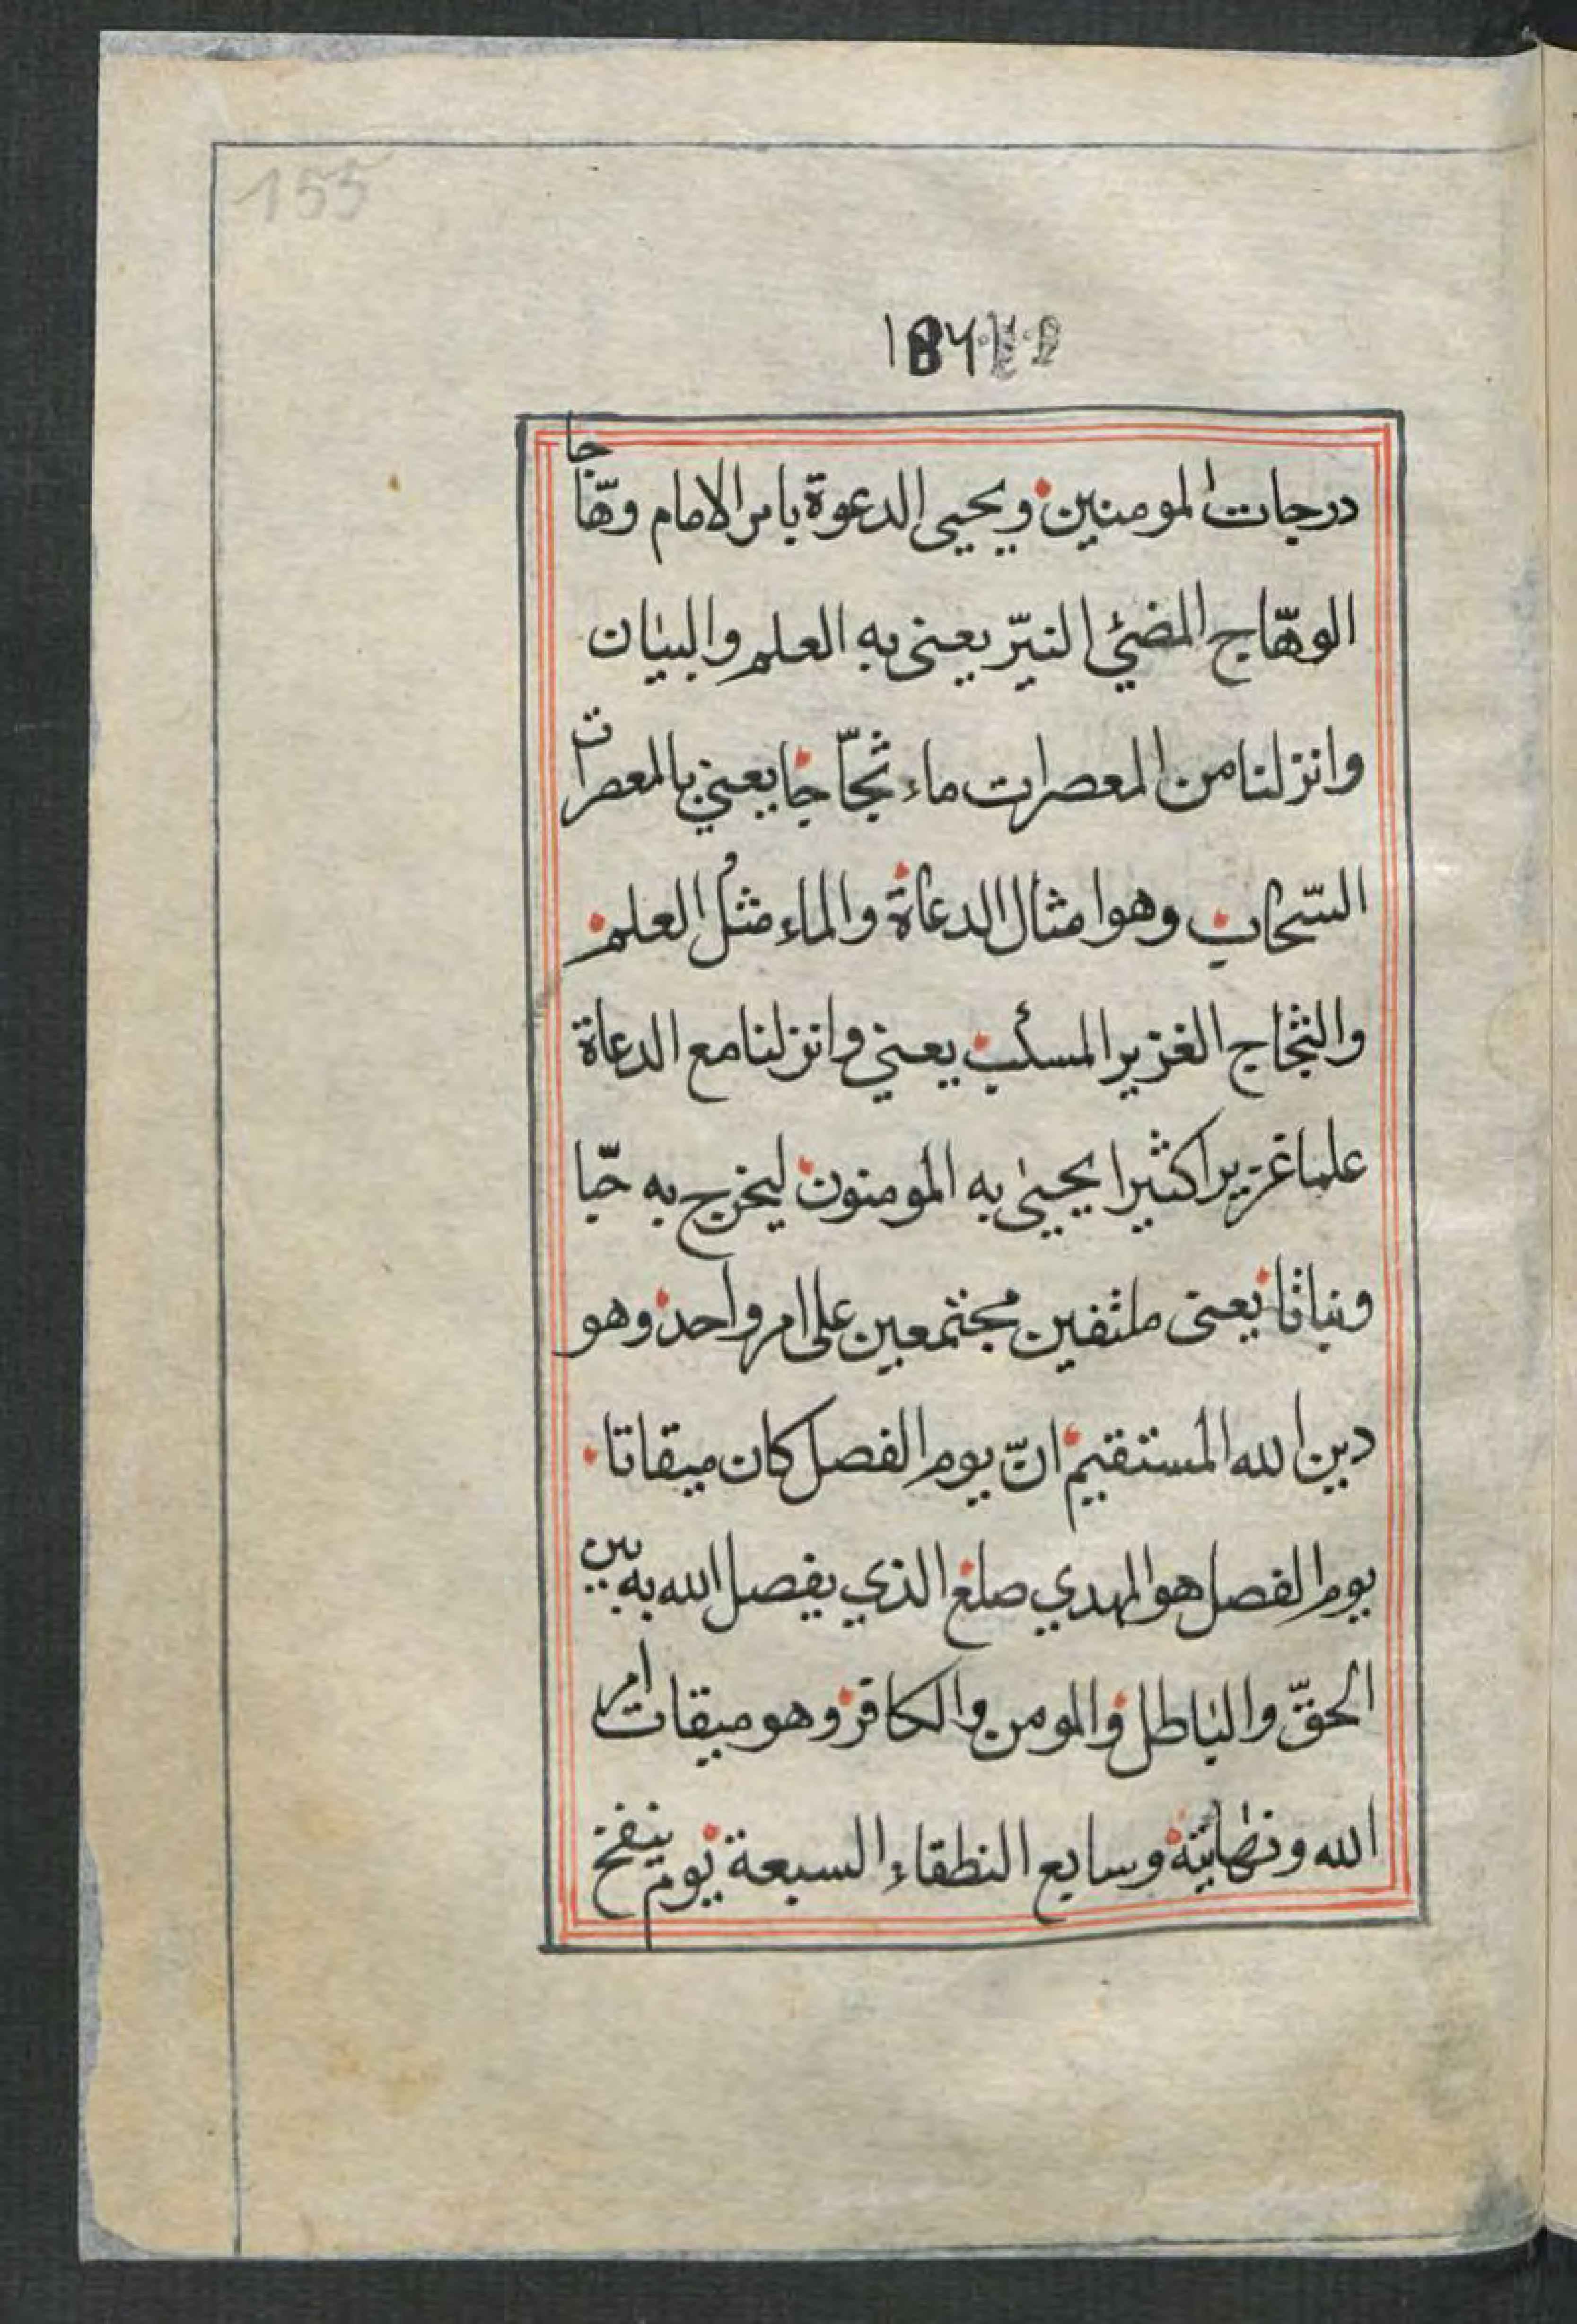 155
درجات المومنين ويحيى الدعوة بامر الامام وهّاجا
الوهّاج المضئي النيّر يعنى به العلم والبيان
وانزلنا من المعصرات ماء ثجّاجا يعني بالمعصرات
السّحاب وهوا مثال الدعاة والماء مثل العلم
والثجّاج الغزير المسكب يعني وانزلنا مع الدعاة
علما غزيرا كثيرا يحيى به المومنون ليخرج به حبّا
ونباتا يعنى ملتفين مجتمعين على امر واحد وهو
دين الله المستقيم انّ يوم الفصل كان ميقاتا
يوم الفصل هو المهدي صلع الذي يفصل الله به بين
الحقّ والباطل والمومن والكافر وهو ميقات امر
الله ونهايته وسابع النطقاء السبعة يوم ينفخ